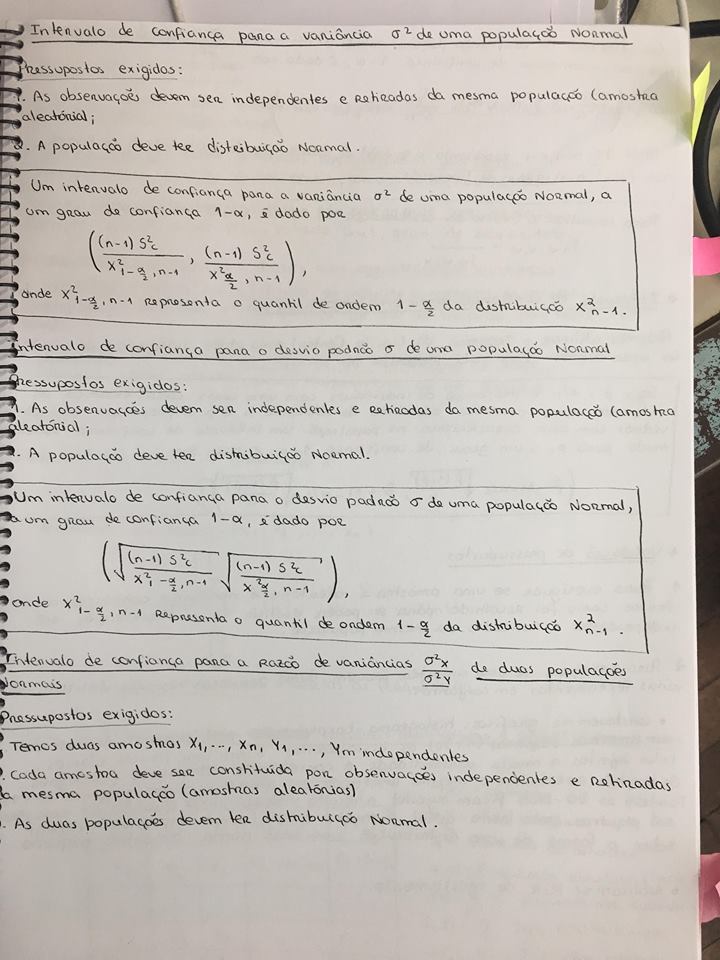 Intervalo de confiança para a variância σ² de uma população Normal
Pressupostos exigidos:
1. As observações devem ser independentes e retiradas da mesma população (amostra
aleatória);
2. A população deve ter distribuição Normal.
Um intervalo de confiança para a variância σ² de uma população Normal, a
um grau de confiança 1-α, é dado por
( (n-1) S²c / X²1-α/2, n-1 , (n-1) S²c / X²α/2, n-1 ),
onde X²1-α/2, n-1 representa o quantil de ordem 1-α/2 da distribuição X²n-1.
Intervalo de confiança para o desvio padrão σ de uma população Normal
Pressupostos exigidos:
1. As observações devem ser independentes e retiradas da mesma população (amostra
aleatória);
2. A população deve ter distribuição Normal.
Um intervalo de confiança para o desvio padrão σ de uma população Normal,
a um grau de confiança 1-α, é dado por
( √((n-1) S²c / X²1-α/2, n-1) √((n-1) S²c / X²α/2, n-1) ),
onde X²1-α/2, n-1 representa o quantil de ordem 1-α/2 da distribuição X²n-1.
Intervalo de confiança para a razão de variâncias σ²X/σ²Y de duas populações
Normais
Pressupostos exigidos:
. Temos duas amostras X1,..., Xn, Y1,..., Ym independentes
. Cada amostra deve ser constituída por observações independentes e retiradas
da mesma população (amostras aleatórias)
. As duas populações devem ter distribuição Normal.